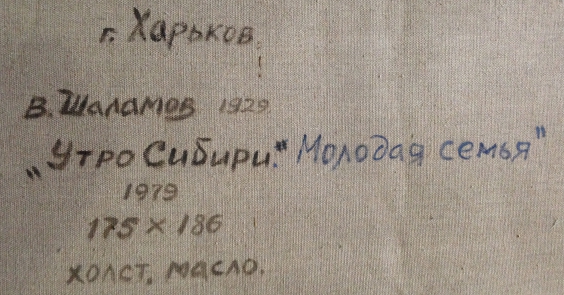 г. Харьков.
В. Шаламов 1929
„Утро Сибири." Молодая семья"
1979
175 × 186
холст, масло.